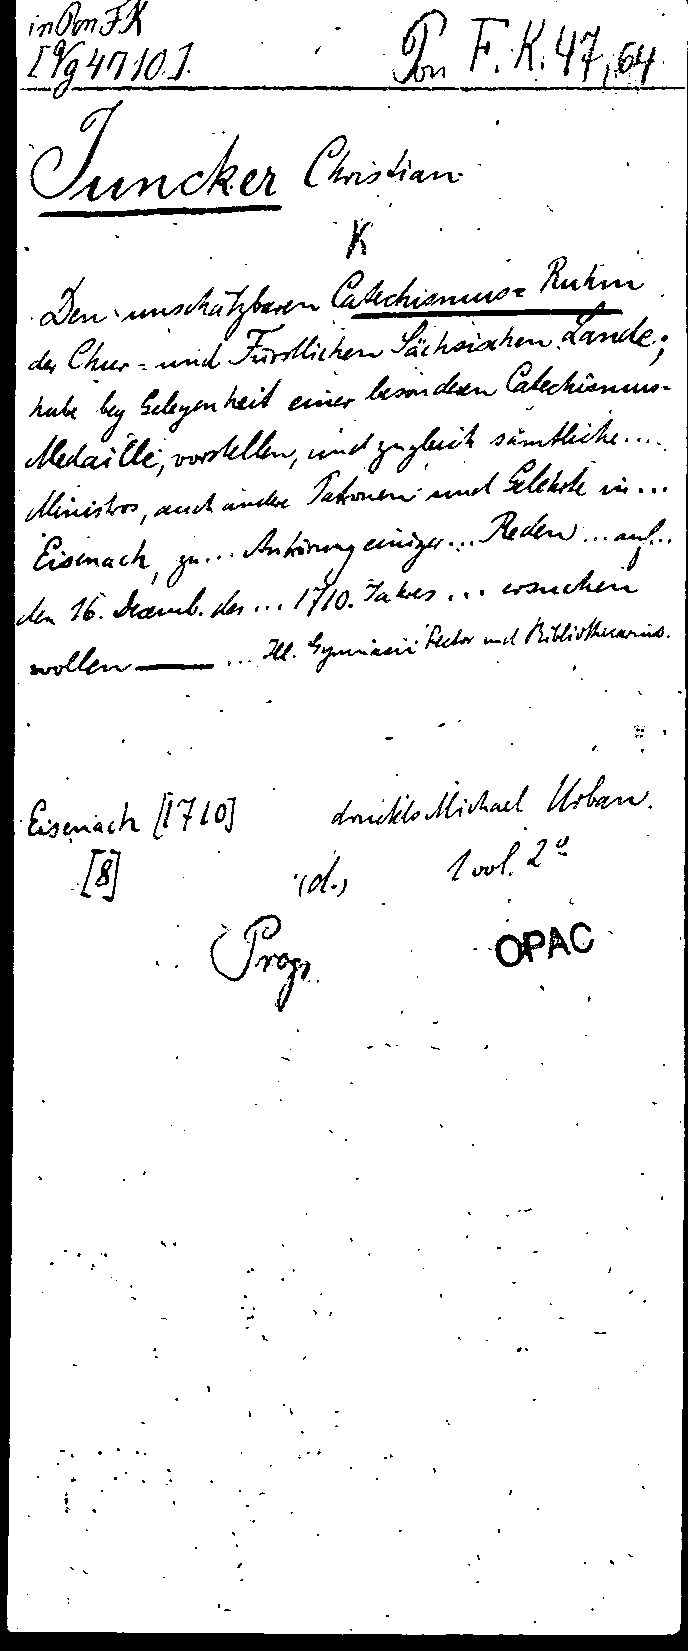 in Pon F.K
[Vg 4710].
Pon F. K. 47,64.
Juncker Christian
K
Den unschätzbaren Catechismus= Ruhm
der Chur= und Fürstlichen Sächsischen Lande;
habe bey Gelegenheit einer besonderen Catechismus-
Medaille, vorstellen, und zugleich sämtliche ...
Ministros, auch andere Patronen und Gelehrte in ...
Eisenach, zu ... Anhörung einiger ... Reden ... auf ...
den 16. Decemb. des ... 1710. Jahres ... ersuchen
wollen — ... Ill. Gymnasii Rector und Bibliothecarius.
Eisenach [1710] druckts Michael Urban.
[8] (d.) 1 vol. 2°
Progr.
OPAC